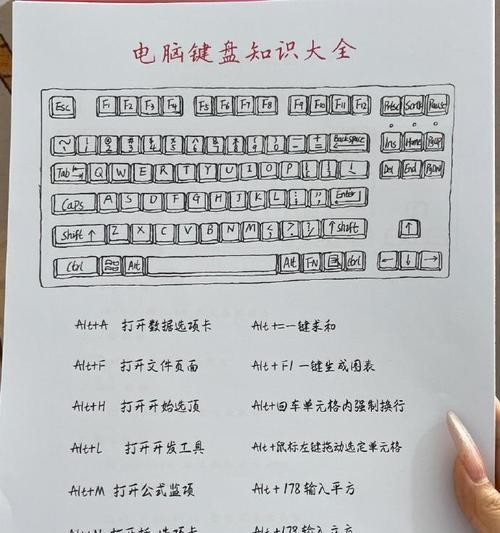 电脑键盘知识大全
Esc F1 F2 F3 F4 F5 F6 F7 F8 F9 F10 F11 F12 Prtsc Scroll Pause
Backspace Ins Home PgUp
Tab Q W E R T Y U I O P Del End PgDnd
Caps A S D F G H J K L Enter
Shift ↑ Z X C V B N M ↑ shift ↑
Ctrl Alt Alt FN Ctrl ← ↓ →
Alt+A 打开数据选项卡 Alt+=一键求和
Alt+F 打开文件页面 Alt+F1 一键生成图表
Alt+H 打开开始选顶 Alt+回车单元格内强制换行
Alt+L 打开开发工具 Alt+鼠标左键拖动选定单元格
Alt+M 打开公式监项 Alt+178输入平方